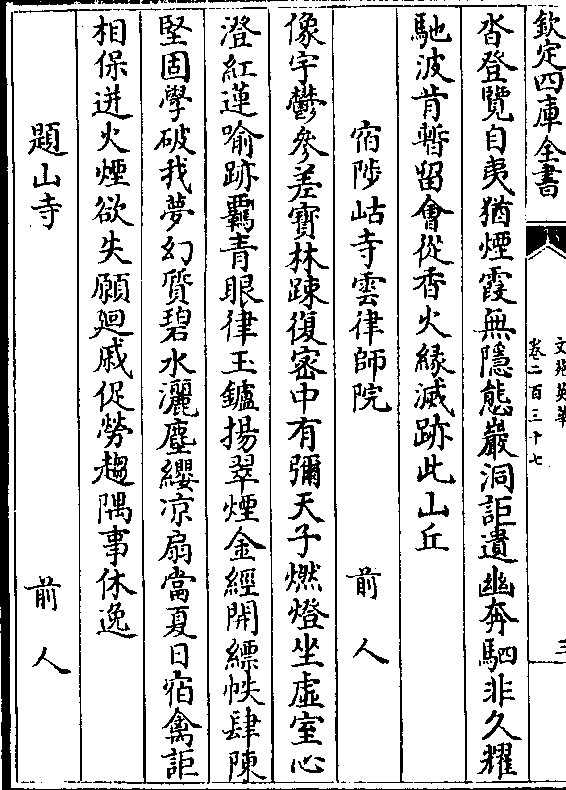 欽定四庫全書
文苑英華
卷二百三十七
三
沓登覽自夷猶煙霞無隱態巖洞詎遺幽奔駟非久耀
馳波肯暫留會從香火緣滅跡此山丘
宿陟岵寺雲律師院 前人
像宇鬱參差寶林踈復密中有彌天子燃燈坐虛室心
澄紅蓮喻跡羈青眼律玉鑪揚翠煙金經開縹帙肆陳
堅固學破我夢幻質碧水灑塵纓凉扇當夏日宿禽詎
相保迸火煙欲失願廻戚促勞趨隅事休逸
題山寺 前人